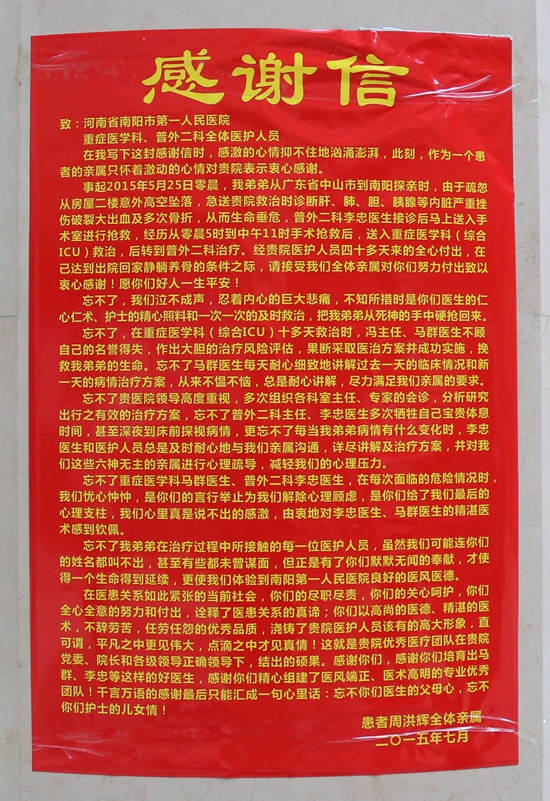 感谢信
致：河南省南阳市第一人民医院
重症医学科、普外二科全体医护人员
在我写下这封感谢信时，感激的心情抑不住地汹涌澎湃，此刻，作为一个患
者的亲属只怀着激动的心情对贵院表示衷心感谢。
事起2015年5月25日零晨，我弟弟从广东省中山市到南阳探亲时，由于疏忽
从房屋二楼意外高空坠落，急送贵院救治时诊断肝、肺、胆、胰腺等内脏严重挫
伤破裂大出血及多次骨折，从而生命垂危，普外二科李忠医生接诊后马上送入手
术室进行抢救，经历从零晨5时到中午11时手术抢救后，送入重症医学科（综合
ICU）救治，后转到普外二科治疗。经贵院医护人员四十多天来的全心付出，在
已达到出院回家静躺养骨的条件之际，请接受我们全体亲属对你们努力付出致以
衷心感谢！愿你们好人一生平安！
忘不了，我们泣不成声，忍着内心的巨大悲痛，不知所措时是你们医生的仁
心仁术、护士的精心照料和一次一次的及时救治，把我弟弟从死神的手中硬抢回来。
忘不了，在重症医学科（综合ICU）十多天救治时，冯主任、马群医生不顾
自己的名誉得失，作出大胆的治疗风险评估，果断采取医治方案并成功实施，挽
救我弟弟的生命。忘不了马群医生每天耐心细致地讲解过去一天的临床情况和新
一天的病情治疗方案，从来不愠不恼，总是耐心讲解，尽力满足我们亲属的要求。
忘不了贵医院领导高度重视，多次组织各科室主任、专家的会诊，分析研究
出行之有效的治疗方案，忘不了普外二科主任、李忠医生多次牺牲自己宝贵休息
时间，甚至深夜到床前探视病情，更忘不了每当我弟弟病情有什么变化时，李忠
医生和医护人员总是及时耐心地与我们亲属沟通，详尽讲解及治疗方案，并对我
们这些六神无主的亲属进行心理疏导，减轻我们的心理压力。
忘不了重症医学科马群医生、普外二科李忠医生，在每次面临的危险情况时，
我们忧心忡忡，是你们的言行举止为我们解除心理顾虑，是你们给了我们最后的
心理支柱，我们心里真是说不出的感激，由衷地对李忠医生、马群医生的精湛医
术感到钦佩。
忘不了我弟弟在治疗过程中所接触的每一位医护人员，虽然我们可能连你们
的姓名都叫不出，甚至有些都未曾谋面，但正是有了你们默默无闻的奉献，才使
得一个生命得到延续，更使我们体验到南阳第一人民医院良好的医风医德。
在医患关系如此紧张的当前社会，你们的尽职尽责，你们的关心呵护，你们
全心全意的努力和付出，诠释了医患关系的真谛；你们以高尚的医德、精湛的医
术，不辞劳苦，任劳任怨的优秀品质，浇铸了贵院医护人员该有的高大形象，直
可谓，平凡之中更见伟大，点滴之中才见真情！这就是贵院优秀医疗团队在贵院
党委、院长和各级领导正确领导下，结出的硕果。感谢你们，感谢你们培育出马
群、李忠等这样的好医生，感谢你们精心组建了医风端正、医术高明的专业优秀
团队！千言万语的感谢最后只能汇成一句心里话：忘不你们医生的父母心，忘不
你们护士的儿女情！
患者周洪辉全体亲属
二〇一五年七月